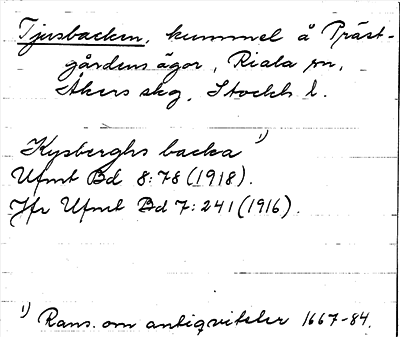 Tjusbacken, kummel å Präst-
gårdens ägor, Riala sn,
Åkers skg, Stockh. l.
Kysberghs backa 1)
Ufmt Bd 8:78 (1918).
Jfr Ufmt Bd 7:241 (1916).
1) Rans. om antiqviteter 1667-84.